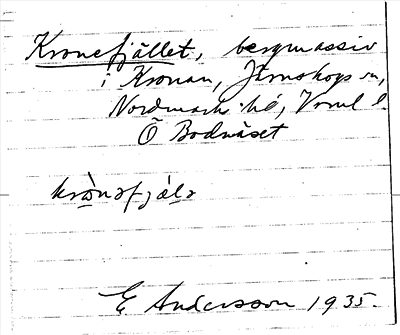 Kronefjället, bergmassiv
i Kronan, Järnskogs sn,
Nordmarks hd, Vrml l.
Ö Bodnäset
krònəfjälə
E Andersson 1935.